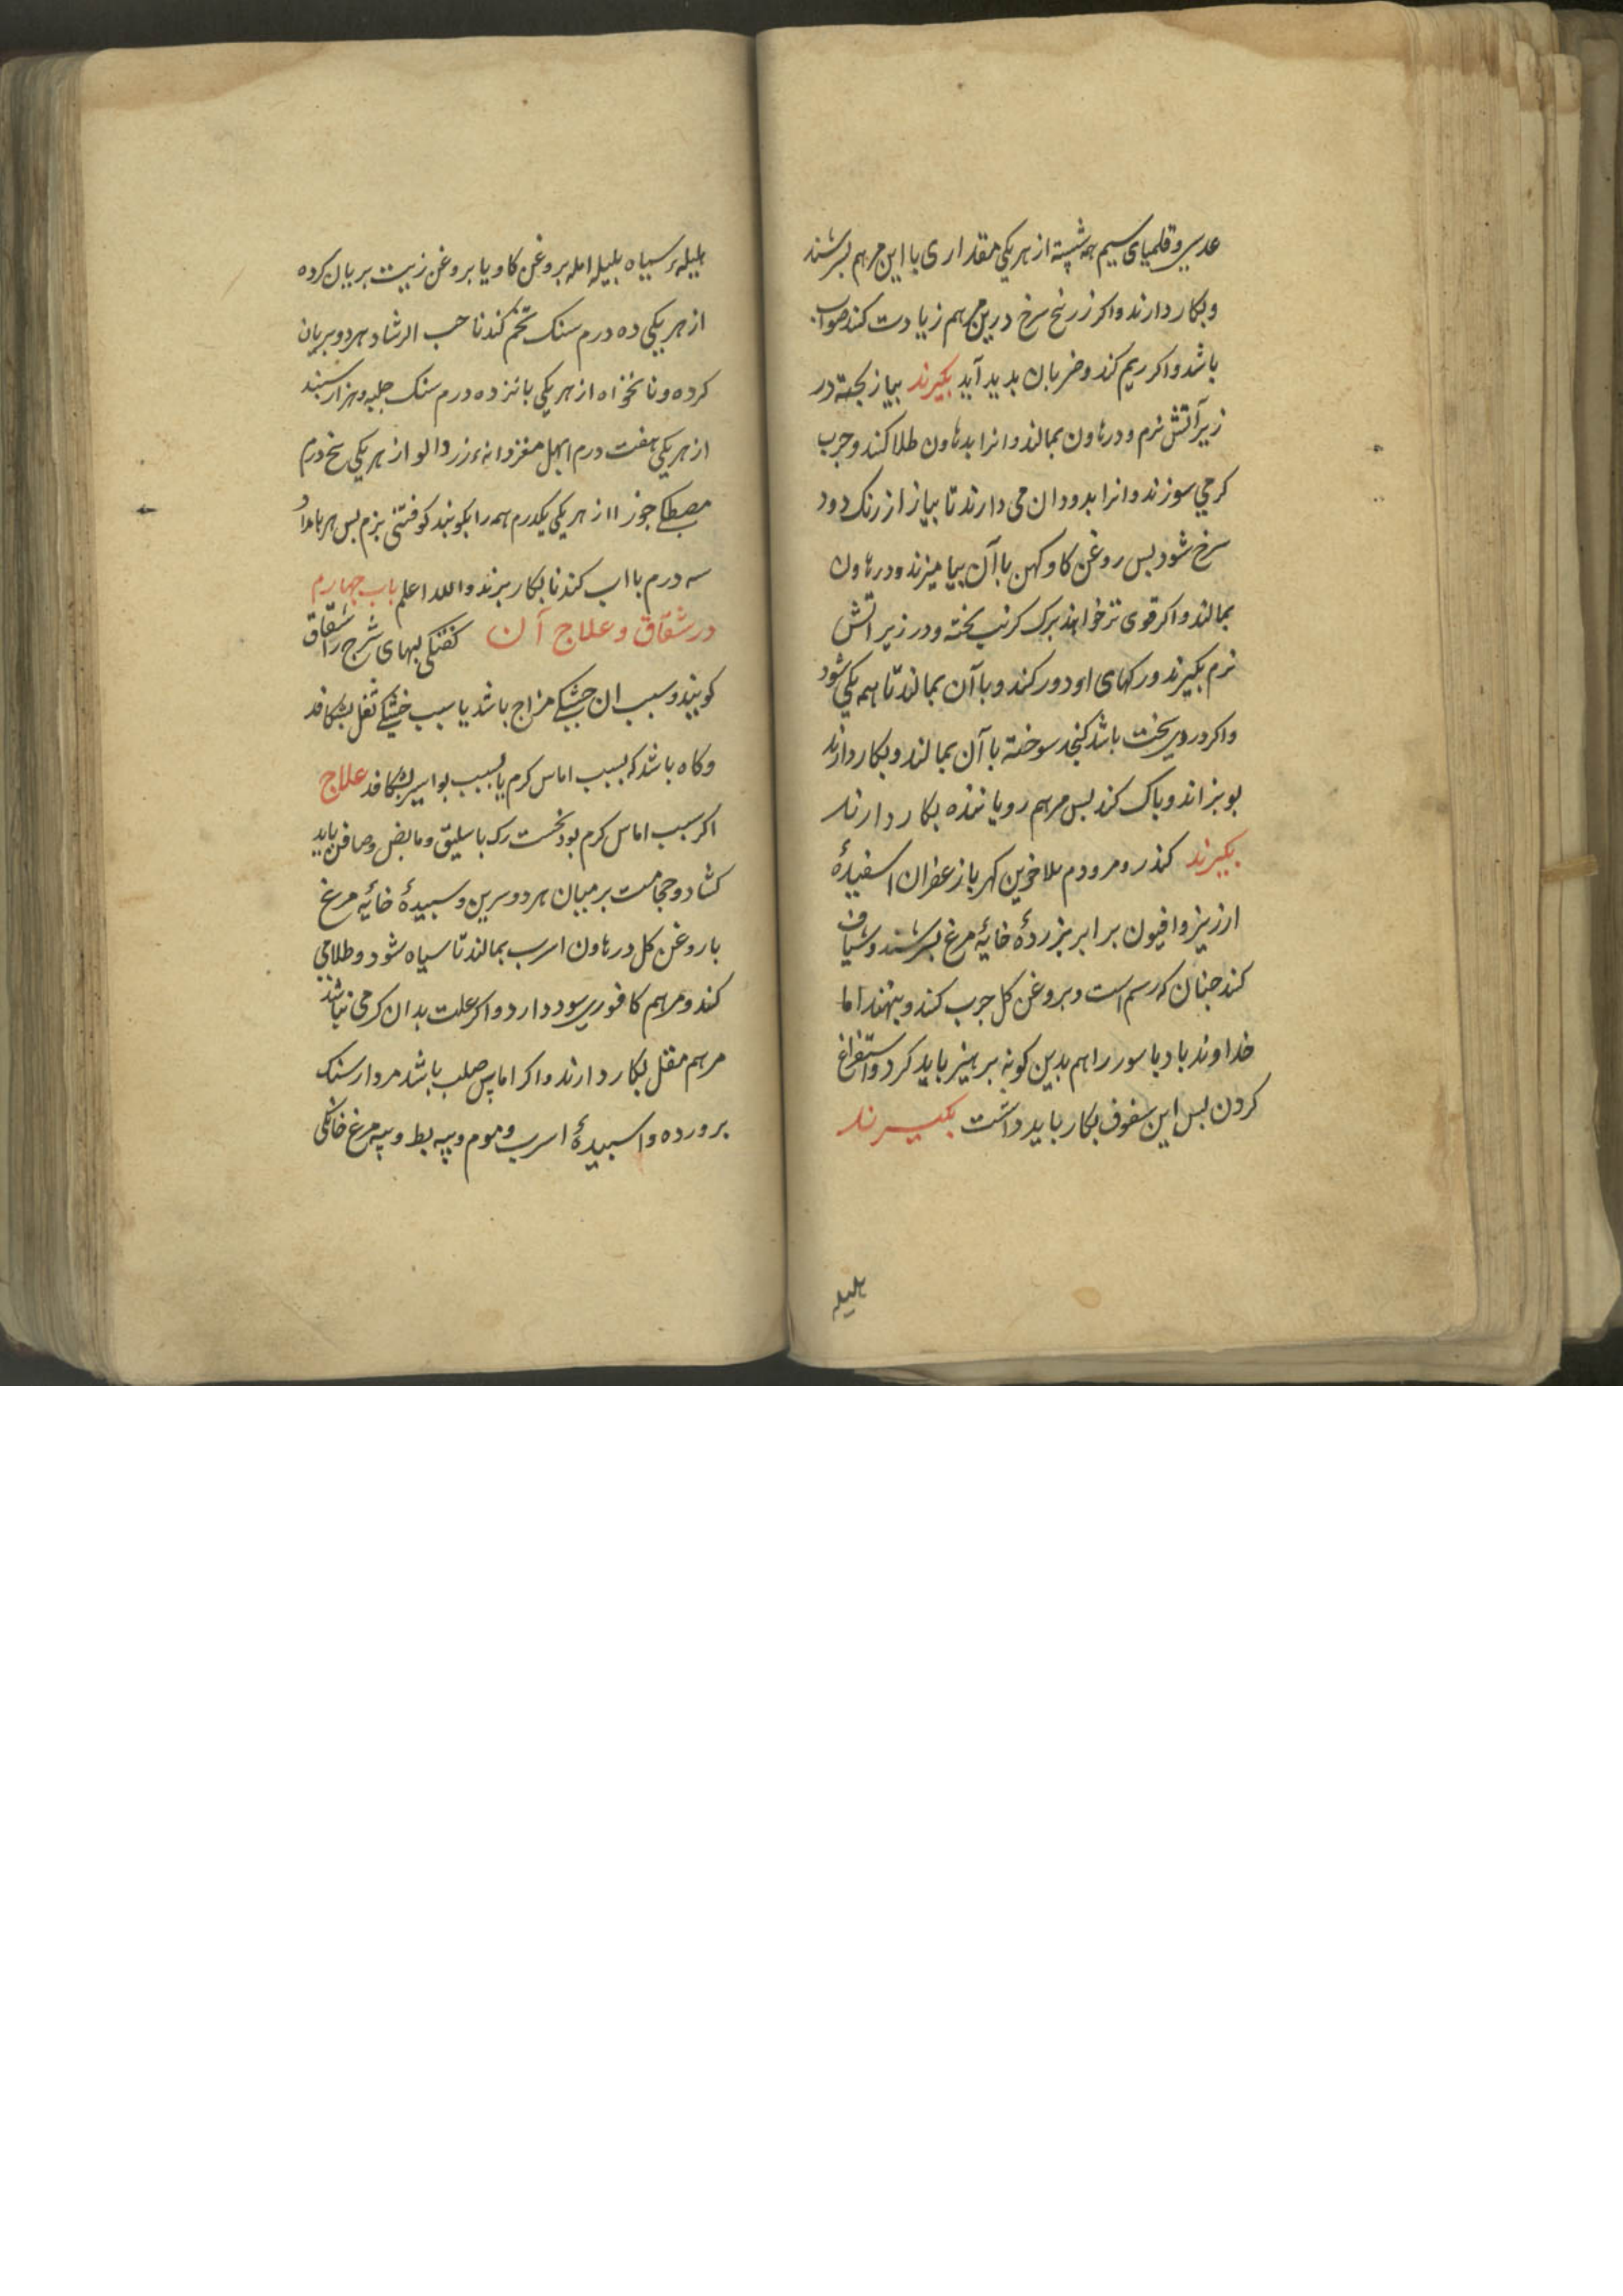 عدسی و قلمیای سیم همه شسته از هر یکی مقداری با این مرهم بسرشند
و بکار دارند و اکر زرنیخ سرخ درین مرهم زیادت کنند صواب
باشد و اکر ریم کند و ضربان بدید آید بکیرند بیاز بخته در
زیر آتش نرم و در هاون بمالند و انرا بدهاون طلا کنند و جرب
کرمی سوزند و انرا بدود آن می دارند تا بیاز از رنک دود
سرخ شود بس روغن کاو کهن با آن بیامیزند و در هاون
بمالند و اکر قوی تر خواهند برک کرنب بخته و در زیر اتش
نرم بکیرند و رکهای او دور کنند و با آن بمالند تا همه یکی شود
و اکر درد سخت باشد کنجد سوخته با آن بمالند و بکار دارند
بوبزاند و باک کند بس مرهم رویاننده بکار دارند
بکیرند کندر و مر و دم الاخوین کهربا زعفران اسفیدهٔ
ارزیز و افیون برابر بزردهٔ خایهٔ مرغ بسرشند و شیاف
کنند جنان که رسم است و بروغن کل جرب کنند و بنهند اما
خداوند باد باسور را هم بدین کونه برهیز باید کرد و استفراغ
کردن بس این سفوف بکار باید داشت بکیرند
هلیله
هلیلهٔ سیاه بلیله امله بروغن کاو یا بروغن زیت بریان کرده
از هر یکی ده درم سنک تخم کندنا حب الرشاد هر دو بریان
کرده و نانخواه از هر یکی بانزده درم سنک حلبه و هزار سبند
از هر یکی هفت درم ابهل مغز دانهٔ زردالو از هر یکی بنج درم
مصطکی جوز از هر یکی یکدرم همه را بکوبند کوفتنی نرم بس هر بامداد
سه درم با اب کندنا بکار برند والله اعلم باب چهارم
در شقاق و علاج آن کفتکی لبهای شرج را شقاق
کویند و سبب ان خشکی مزاج باشد یا سبب خشکی ثفل بشکافد
و کاه باشد که بسبب اماس کرم یا بسبب بواسیر بشکافد علاج
اکر سبب اماس کرم بود نخست رک باسلیق و مابض و صافن باید
کشاد و حجامت بر میان هر دو سرین و سبیدهٔ خایهٔ مرغ
با روغن کل در هاون اسرب بمالند تا سیاه شود و طلا می
کنند و مرهم کافوری سود دارد و اکر علت بدان کرمی نباشد
مرهم مقل بکار دارند و اکر اماس صلب باشد مردارسنک
برورده و اسبیدهٔ اسرب و موم و بیه بط و بیه مرغ خانکی